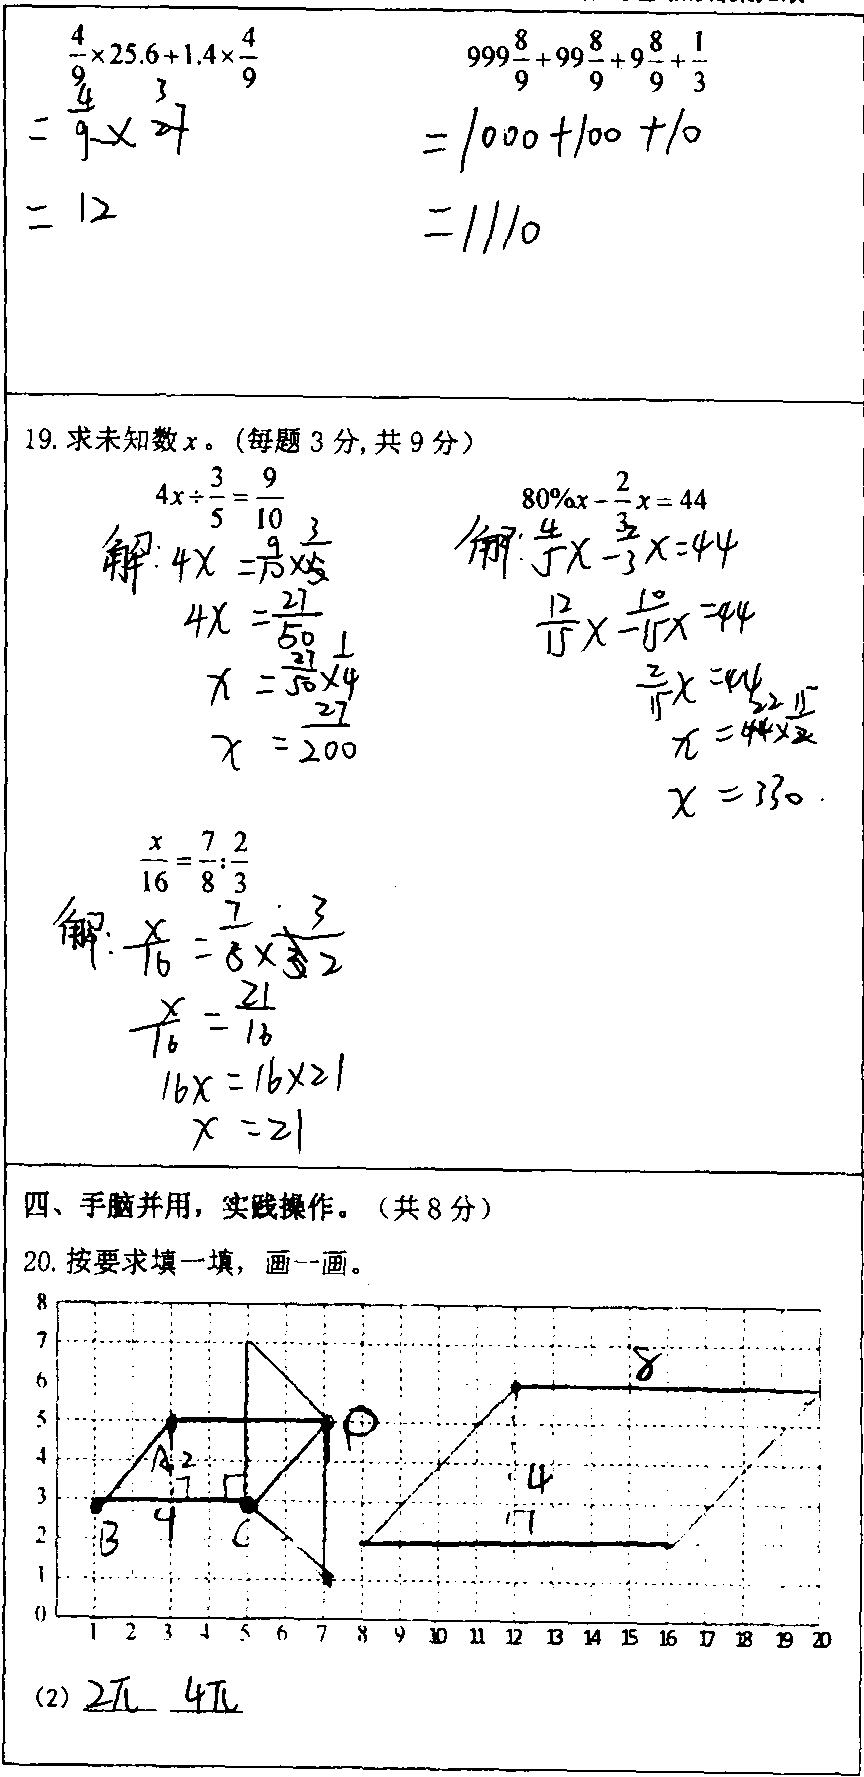 4/9×25.6+1.4×4/9
=4/9×27 3
=12
999 8/9+99 8/9+9 8/9+1/3
=1000+100+10
=1110
19. 求未知数x。(每题3分,共9分)
4x÷3/5=9/10
解:4x=9/10×3/5
4x=27/50
x=27/50×1/4
x=27/200
80%x-2/3x=44
解:4/5x-2/3x=44
12/15x-10/15x=44
2/15x=44
x=44×15/2 22
x=330.
x/16=7/8:2/3
解:x/16=7/8×3/2
x/16=21/16
16x=16×21
x=21
四、手脑并用,实践操作。(共8分)
20. 按要求填一填,画一画。
8
7
6
5
4
3
2
1
0
8
A 2
D
4
B 4 C
1 2 3 4 5 6 7 8 9 10 11 12 13 14 15 16 17 18 19 20
(2) 2π 4π